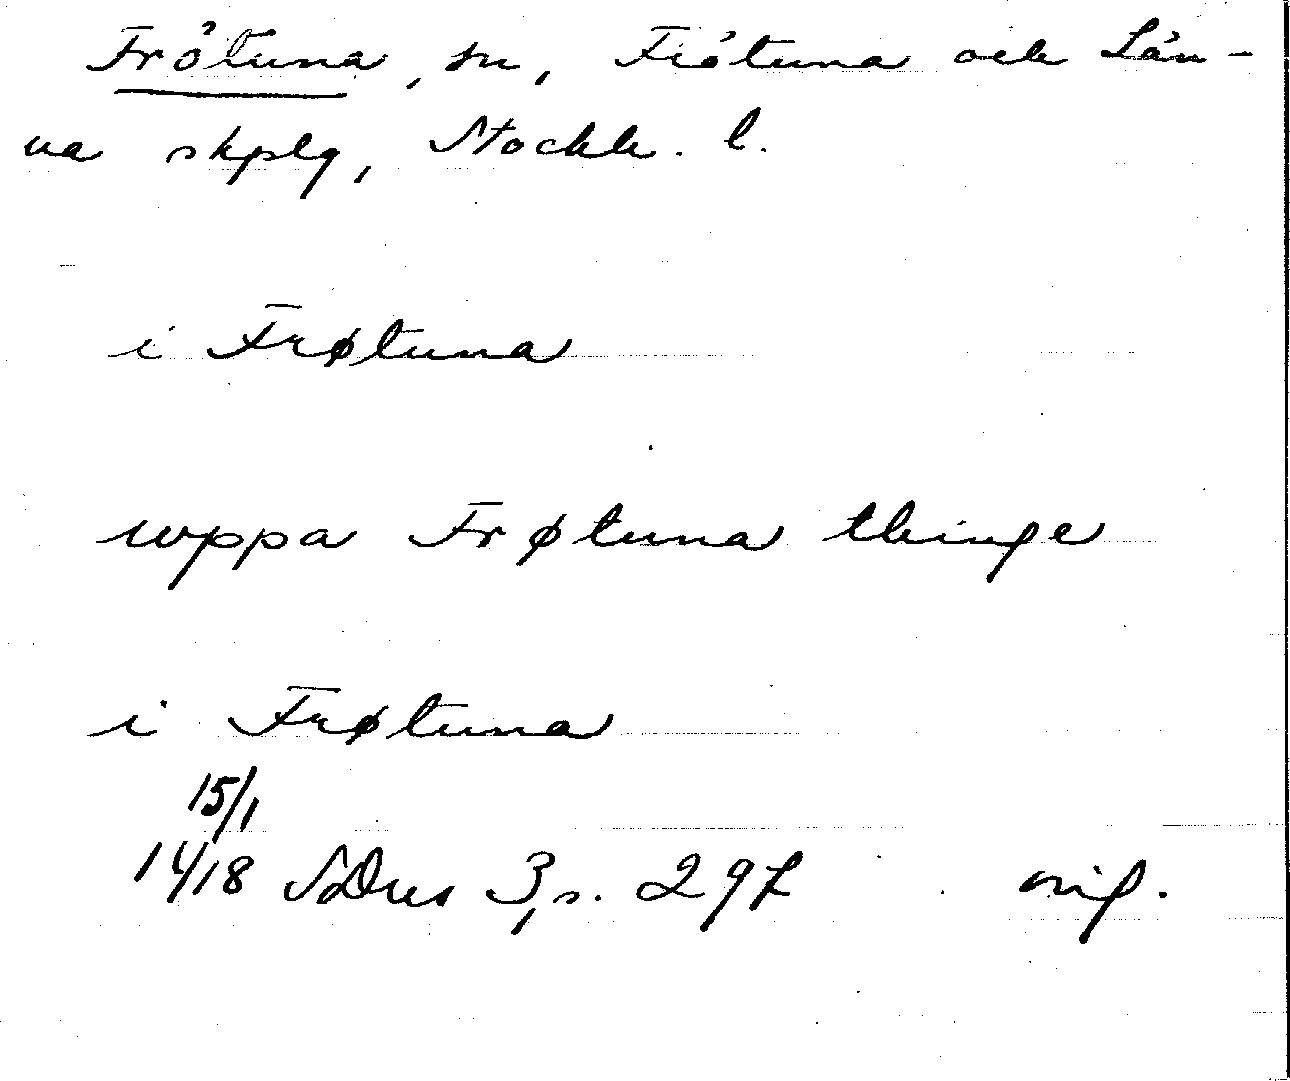 Frötuna, sn, Frötuna och Län-
na skplg, Stockh. l.
i Frøtuna
wppa Frøtuna thinge
i Frøtuna
15/1
1418 SDns 3, s. 297 orig.